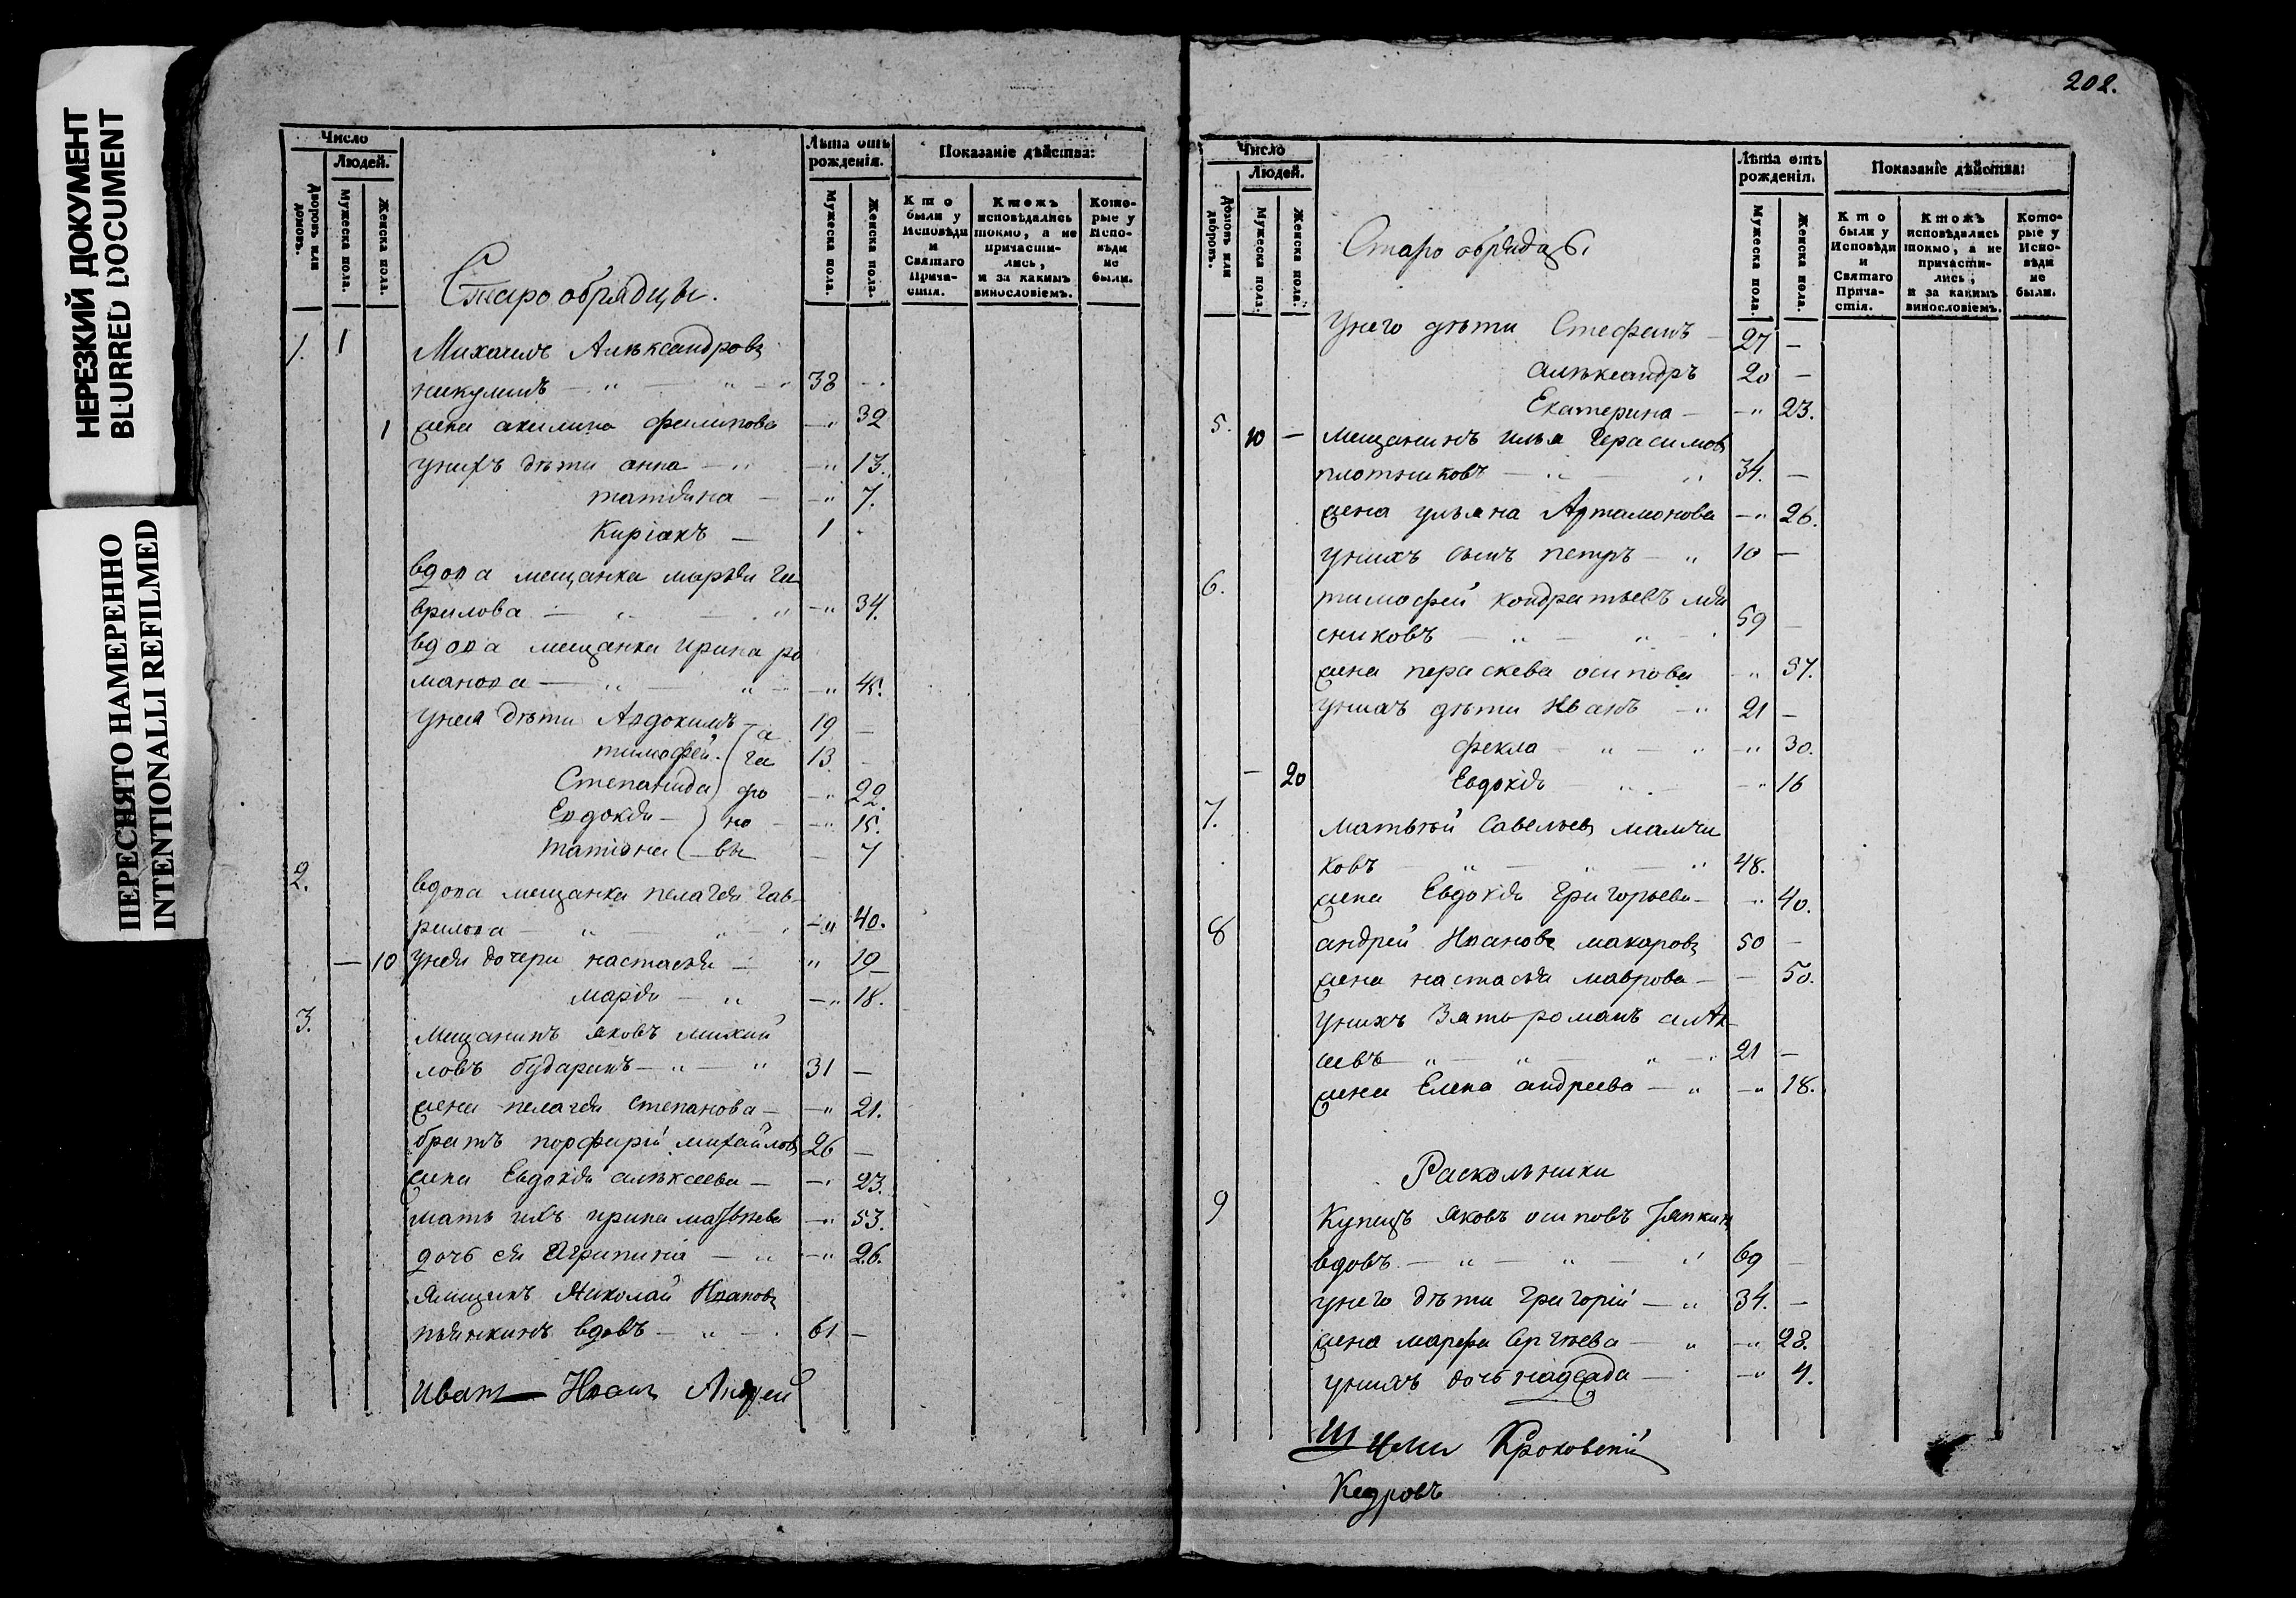 НЕРЕЗКИЙ ДОКУМЕНТ
BLURRED DOCUMENT
ПЕРЕСНЯТО НАМЕРЕННО
INTENTIONALLI REFILMED
Число
Людей.
Дворовъ или домовъ.
Мужеска пола.
Женска пола.
Лѣта отъ рожденія.
Мужеска пола.
Женска пола.
Показаніе дѣйства:
Кто были у Исповѣди и Святаго Прича-стія.
Ктожъ исповѣдались токмо, а не причасти-лись, и за какимъ винословіемъ.
Кото-рые у Испо-вѣди не были.
Старообрядцы.
1. 1 Михаилъ Александровъ
никулинъ 38
1 жена акилина филипова 32
унихъ дѣти анна 13.
татіяна 7.
Киріакъ 1
вдова мещанка марья га
врилова 34.
вдова мещанка ирина ро
манова 45.
унея дѣти Авдокимъ 19
тимофей 13
Степанида 22.
Евдокія 15.
татіяна 7
ага
фо
но
вы
2. вдова мещанка пелагея гав-
рилова 40.
10 унея дочери настасья 19
марія 18.
3. Мещанинъ яковъ михай
ловъ бударинъ 31
жена пелагея степанова 21.
братъ порфирій михайловъ 26
жена Евдокія алексеева 23.
мать ихъ ирина матвѣева 53.
дочь ея Агрипина 26.
Ямщикъ Николай Ивановъ
пьянкинъ вдовъ 61
Иванъ Андрей
202.
Число
Людей.
Домовъ или дворовъ.
Мужеска пола.
Женска пола.
Лѣта отъ рожденія.
Мужеска пола.
Женска пола.
Показаніе дѣйства:
Кто были у Исповѣди и Святаго Прича-стія.
Ктожъ исповѣдались токмо, а не причасти-лись, и за какимъ винословіемъ.
Кото-рые у Испо-вѣди не были.
Старообрядцы.
Унего дѣти Стефанъ 27
александръ 20
Екатерина 23.
5. 10 мещанинъ илья Герасимовъ
плотниковъ 34.
жена ульяна Артамонова 26.
унихъ сынъ петръ 10
6. тимофей кондратьевъ мя
сниковъ 59
жена параскева осипова 57.
унихъ дѣти Иванъ 21
фекла 30.
20 Евдокія 16
7. матвѣй савельевъ мамчи
ковъ 48.
жена Евдокія григорьева 40.
8 андрей Ивановъ макаровъ 50
жена настасья маврова 50.
унихъ Зять романъ
21
жена Елена андреева 18.
Раскольники
9 Купецъ яковъ осиповъ
вдовъ 69
унего дѣти григорій 34.
жена марфа сергѣева 28.
унихъ дочь надежда 4.
Кроковскій
Кедровъ